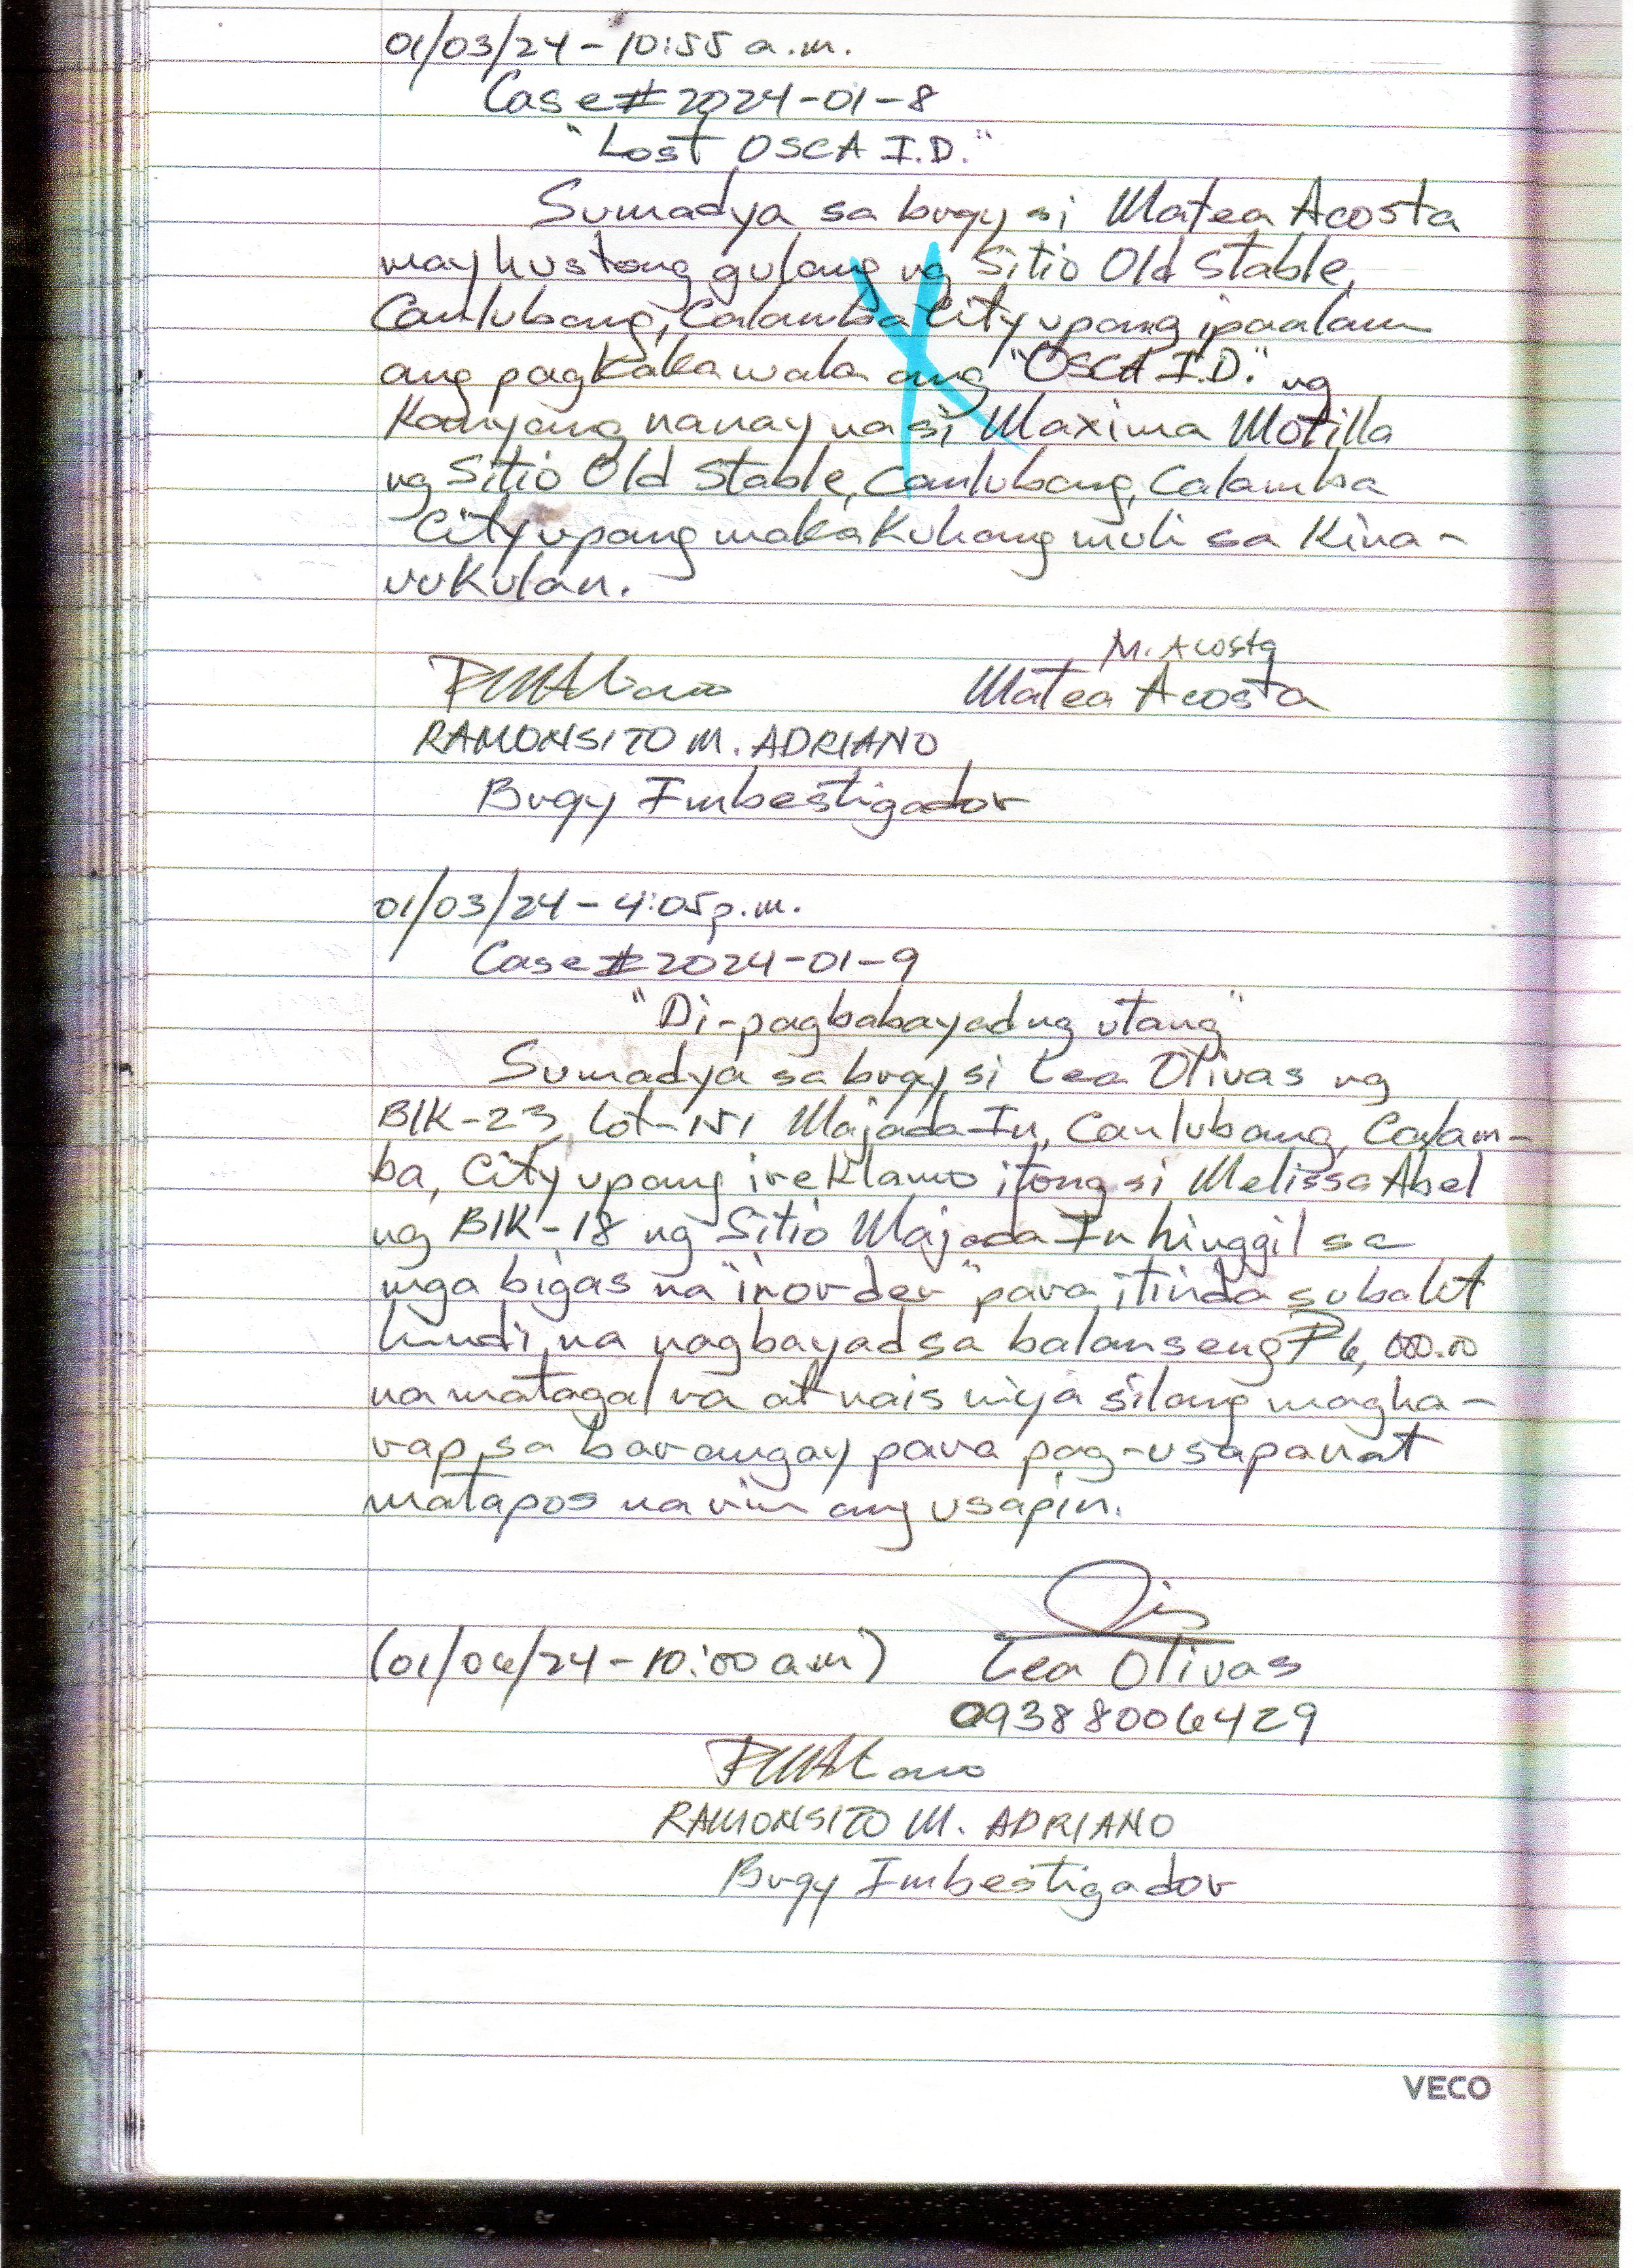 01/03/24 - 10:55 a.m.
Case# 2024-01-8
"Lost OSCA I.D."
Sumadya sa brgy si Matea Acosta
may hustong gulang ng Sitio Old Stable,
Canlubang, Calamba City upang ipaalam
ang pagkakawala ang "OSCA I.D." ng
Kanyang nanay na si Maxima Motilla
ng Sitio Old Stable, Canlubang, Calamba
City upang makakuhang muli sa Kina-
uukulan.
M. Acosta
Matea Acosta
RAMONSITO M. ADRIANO
Brgy Imbestigador
01/03/24 - 4:05 p.m.
Case# 2024-01-9
"Di-pagbabayad ng utang"
Sumadya sa brgy si Lea Olivas ng
Blk-23, Lot-151 Majada-In, Canlubang, Calam-
ba, City upang ireklamo itong si Melissa Abel
ng Blk-18 ng Sitio Majada In hinggil sa
mga bigas na "inorder" para itinda subalit
hindi na nagbayad sa balanseng ₱6,000.00
na matagal na at nais niya silang magha-
rap sa barangay para pag-usapan at
matapos na rin ang usapin.
(01/06/24 - 10:00 a.m)
Lea Olivas
09388006429
RAMONSITO M. ADRIANO
Brgy Imbestigador
VECO